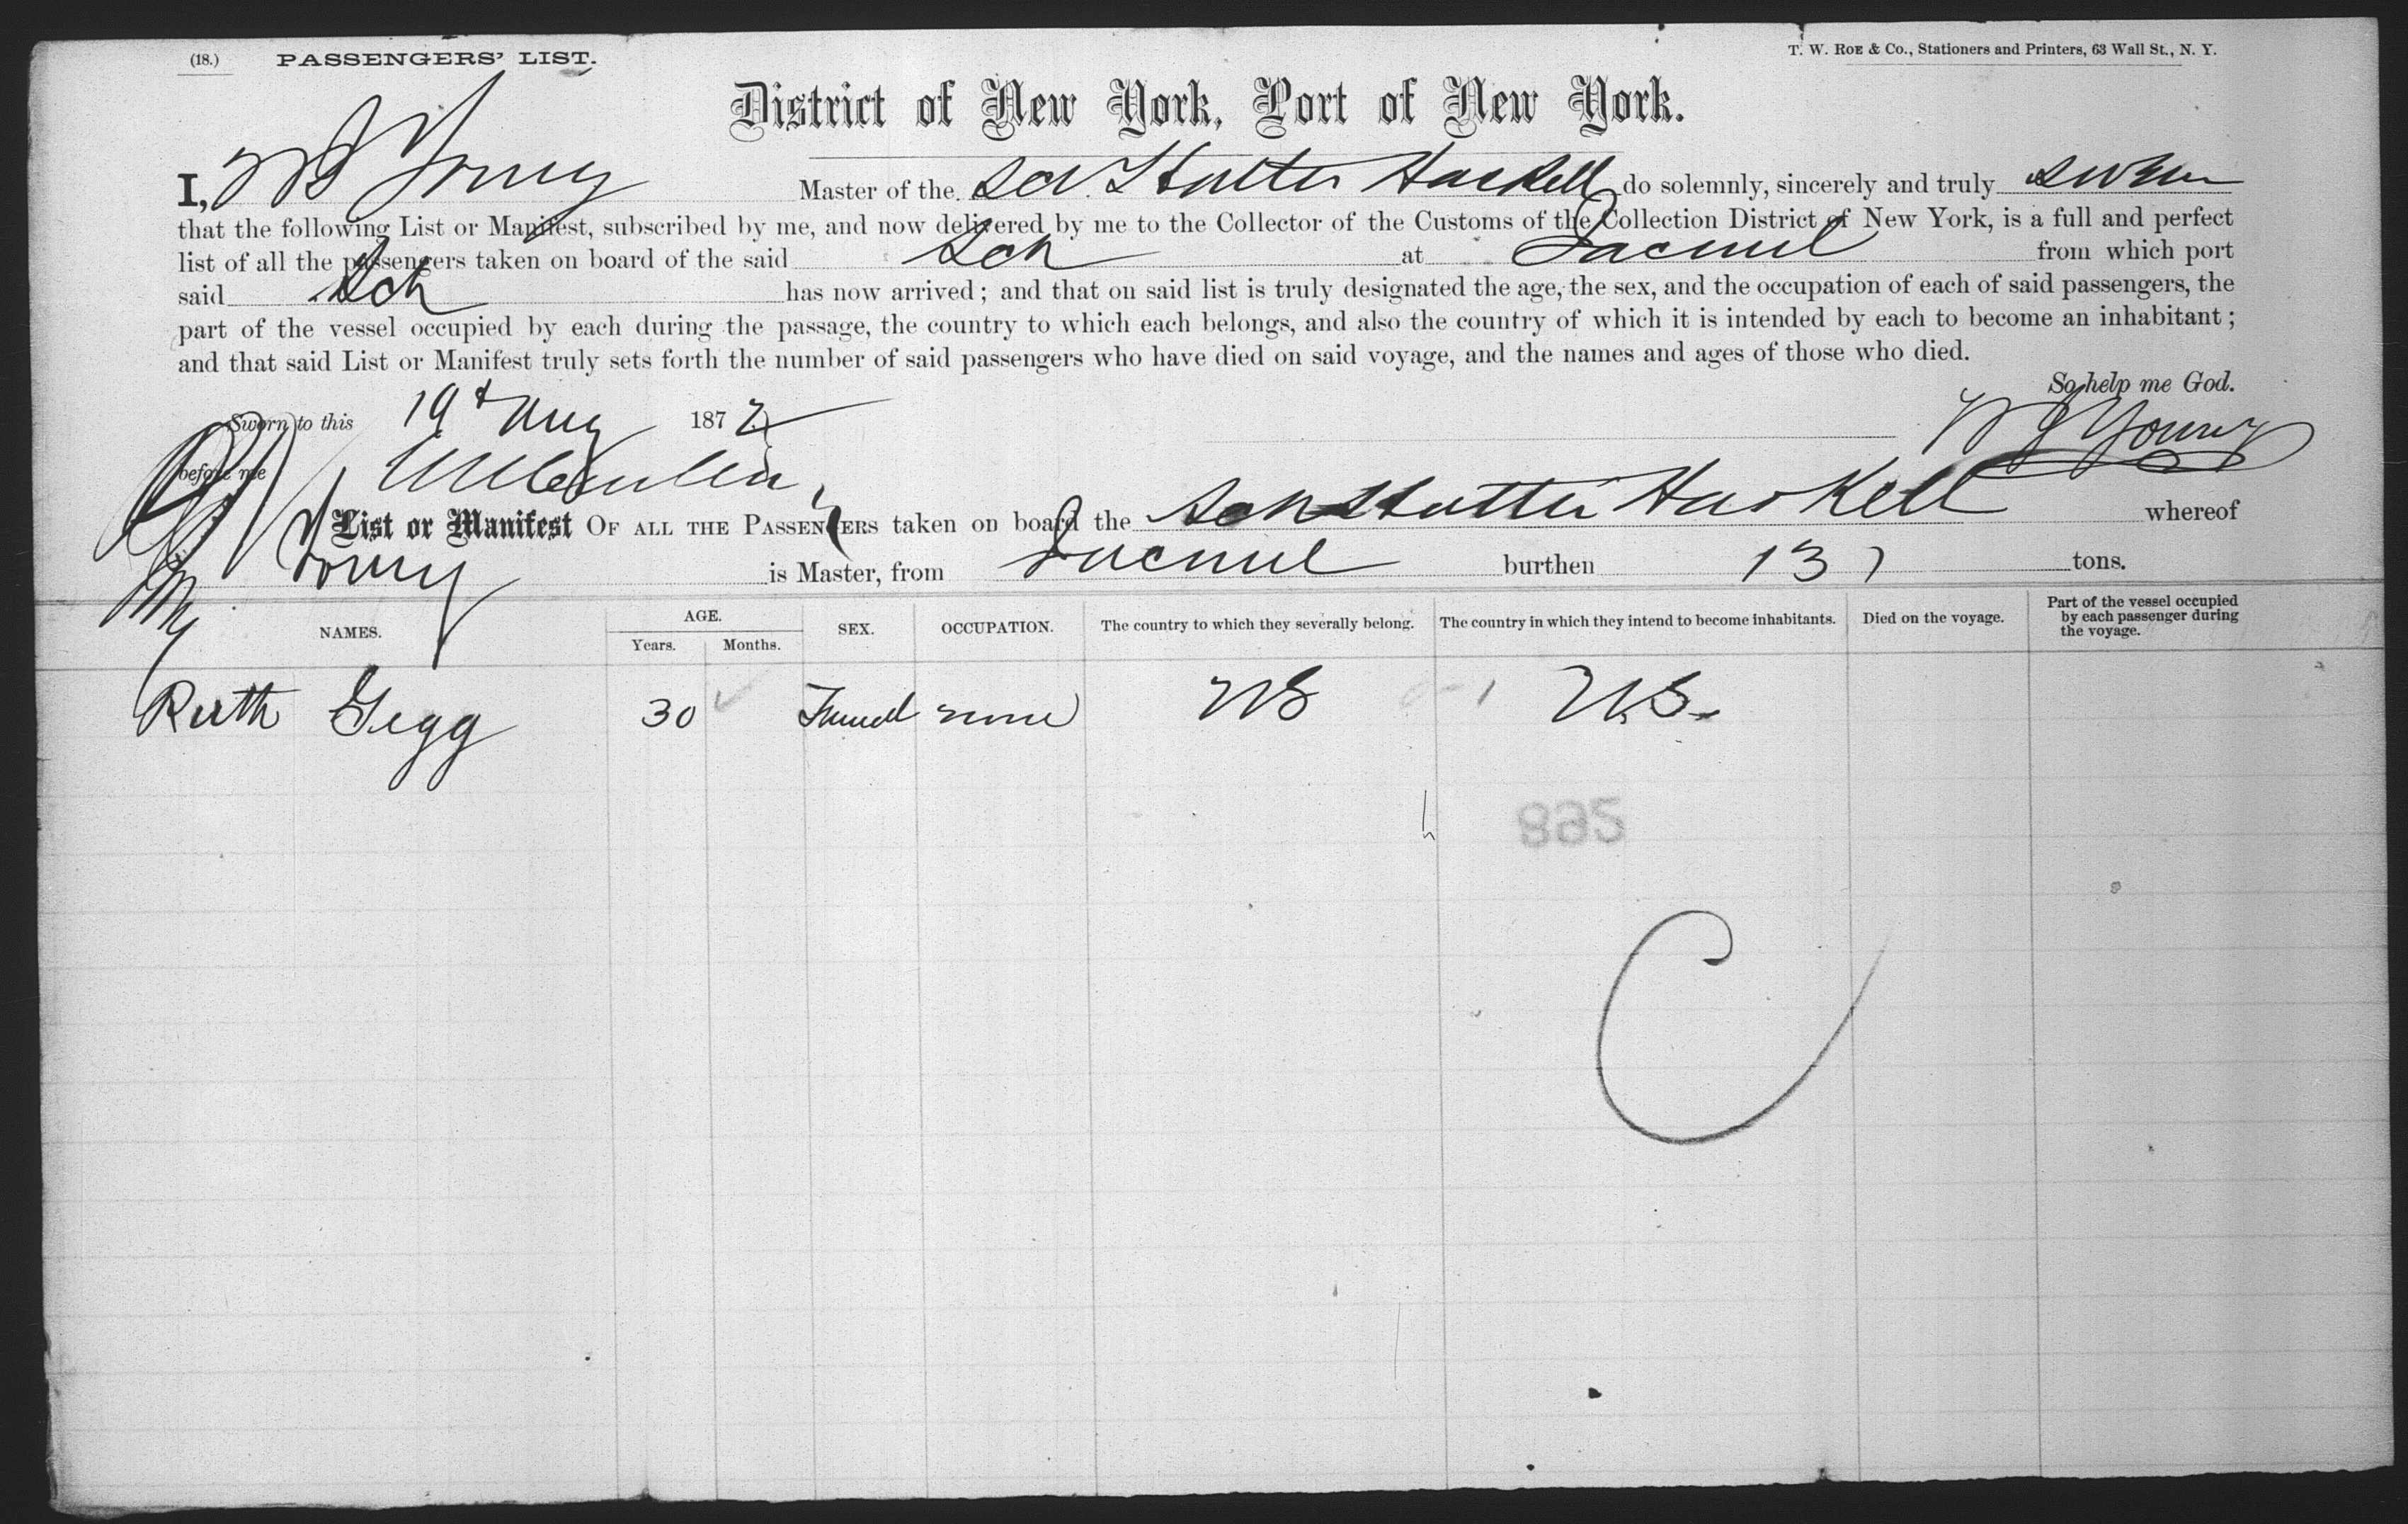 (18.) PASSENGERS' LIST.
T. W. ROE & Co., Stationers and Printers, 63 Wall St., N. Y.
District of New York, Port of New York.
I, W J Young Master of the Sch Hattie Haskell do solemnly, sincerely and truly swear
that the following List or Manifest, subscribed by me, and now delivered by me to the Collector of the Customs of the Collection District of New York, is a full and perfect
list of all the passengers taken on board of the said Sch at Jacmel from which port
said Sch has now arrived; and that on said list is truly designated the age, the sex, and the occupation of each of said passengers, the
part of the vessel occupied by each during the passage, the country to which each belongs, and also the country of which it is intended by each to become an inhabitant;
and that said List or Manifest truly sets forth the number of said passengers who have died on said voyage, and the names and ages of those who died.
So help me God.
Sworn to this 19 Aug 1872 W J Young
before me
List or Manifest OF ALL THE PASSENGERS taken on board the Sch Hattie Haskell whereof
Young is Master, from Jacmel burthen 137 tons.
NAMES. AGE. Years. Months. SEX. OCCUPATION. The country to which they severally belong. The country in which they intend to become inhabitants. Died on the voyage. Part of the vessel occupied by each passenger during the voyage.
Ruth Gegg 30 none US US